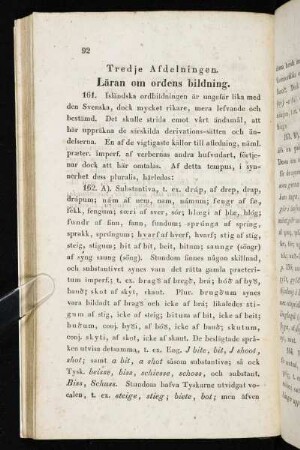 92
Tredje Afdelningen.
Läran om ordens bildning.
161. Isländska ordbildningen är ungefär lika med
den Svenska, dock mycket rikare, mera lefvande och
bestämd. Det skulle strida emot vårt ändamål, att
här uppräkna de särskilda derivations-sätten och än-
delserna. En af de vigtigaste källor till afledning, näml.
præter. imperf. af verbernas andra hufvudart, förtje-
nar dock att här omtalas. Af detta tempus, i syn-
nerhet dess pluralis, härledes:
162. A). Substantiva, t. ex. dráp, af drep, drap,
drápum; nám af nem, nam, námum; fengr af fæ,
fékk, fengum; særi af sver, sór; blægi af blæ, blóg;
fundr af finn, fann, fundum; sprúngs af spring,
sprakk, sprúngum; hvarf af hverf, hvarf; stig af stíg,
steig, stigum; bit af bít, beit, bitum; saungr (söngr)
af sýng saung (söng). Stundom finnes någon skillnad,
och substantivet synes vara det rätta gamla præteri-
tum imperf.; t. ex. bragð af bregð, brá; boð af býð,
bauð; skot af skýt, skaut. Plur. brugðum synes
vara bildadt af bragð och icke af brá; likaledes sti-
gum af stig, icke af steig; bitum af bit, icke af beit;
buðum, conj. byði, af boð, icke af bauð; skutum,
conj. skyti, af skot, icke af skaut. De beslägtade språ-
ken utvisa detsamma, t. ex. Eng. J bite, bit, J shoot,
shot; samt a bit, a shot såsom substantiva; så ock
Tysk. beisse, biss, schiesse, schoss, och substant.
Biss, Schuss. Stundom hafva Tyskarne utvidgat vo-
calen, t. ex. steige, stieg; biete, bot; men äfven